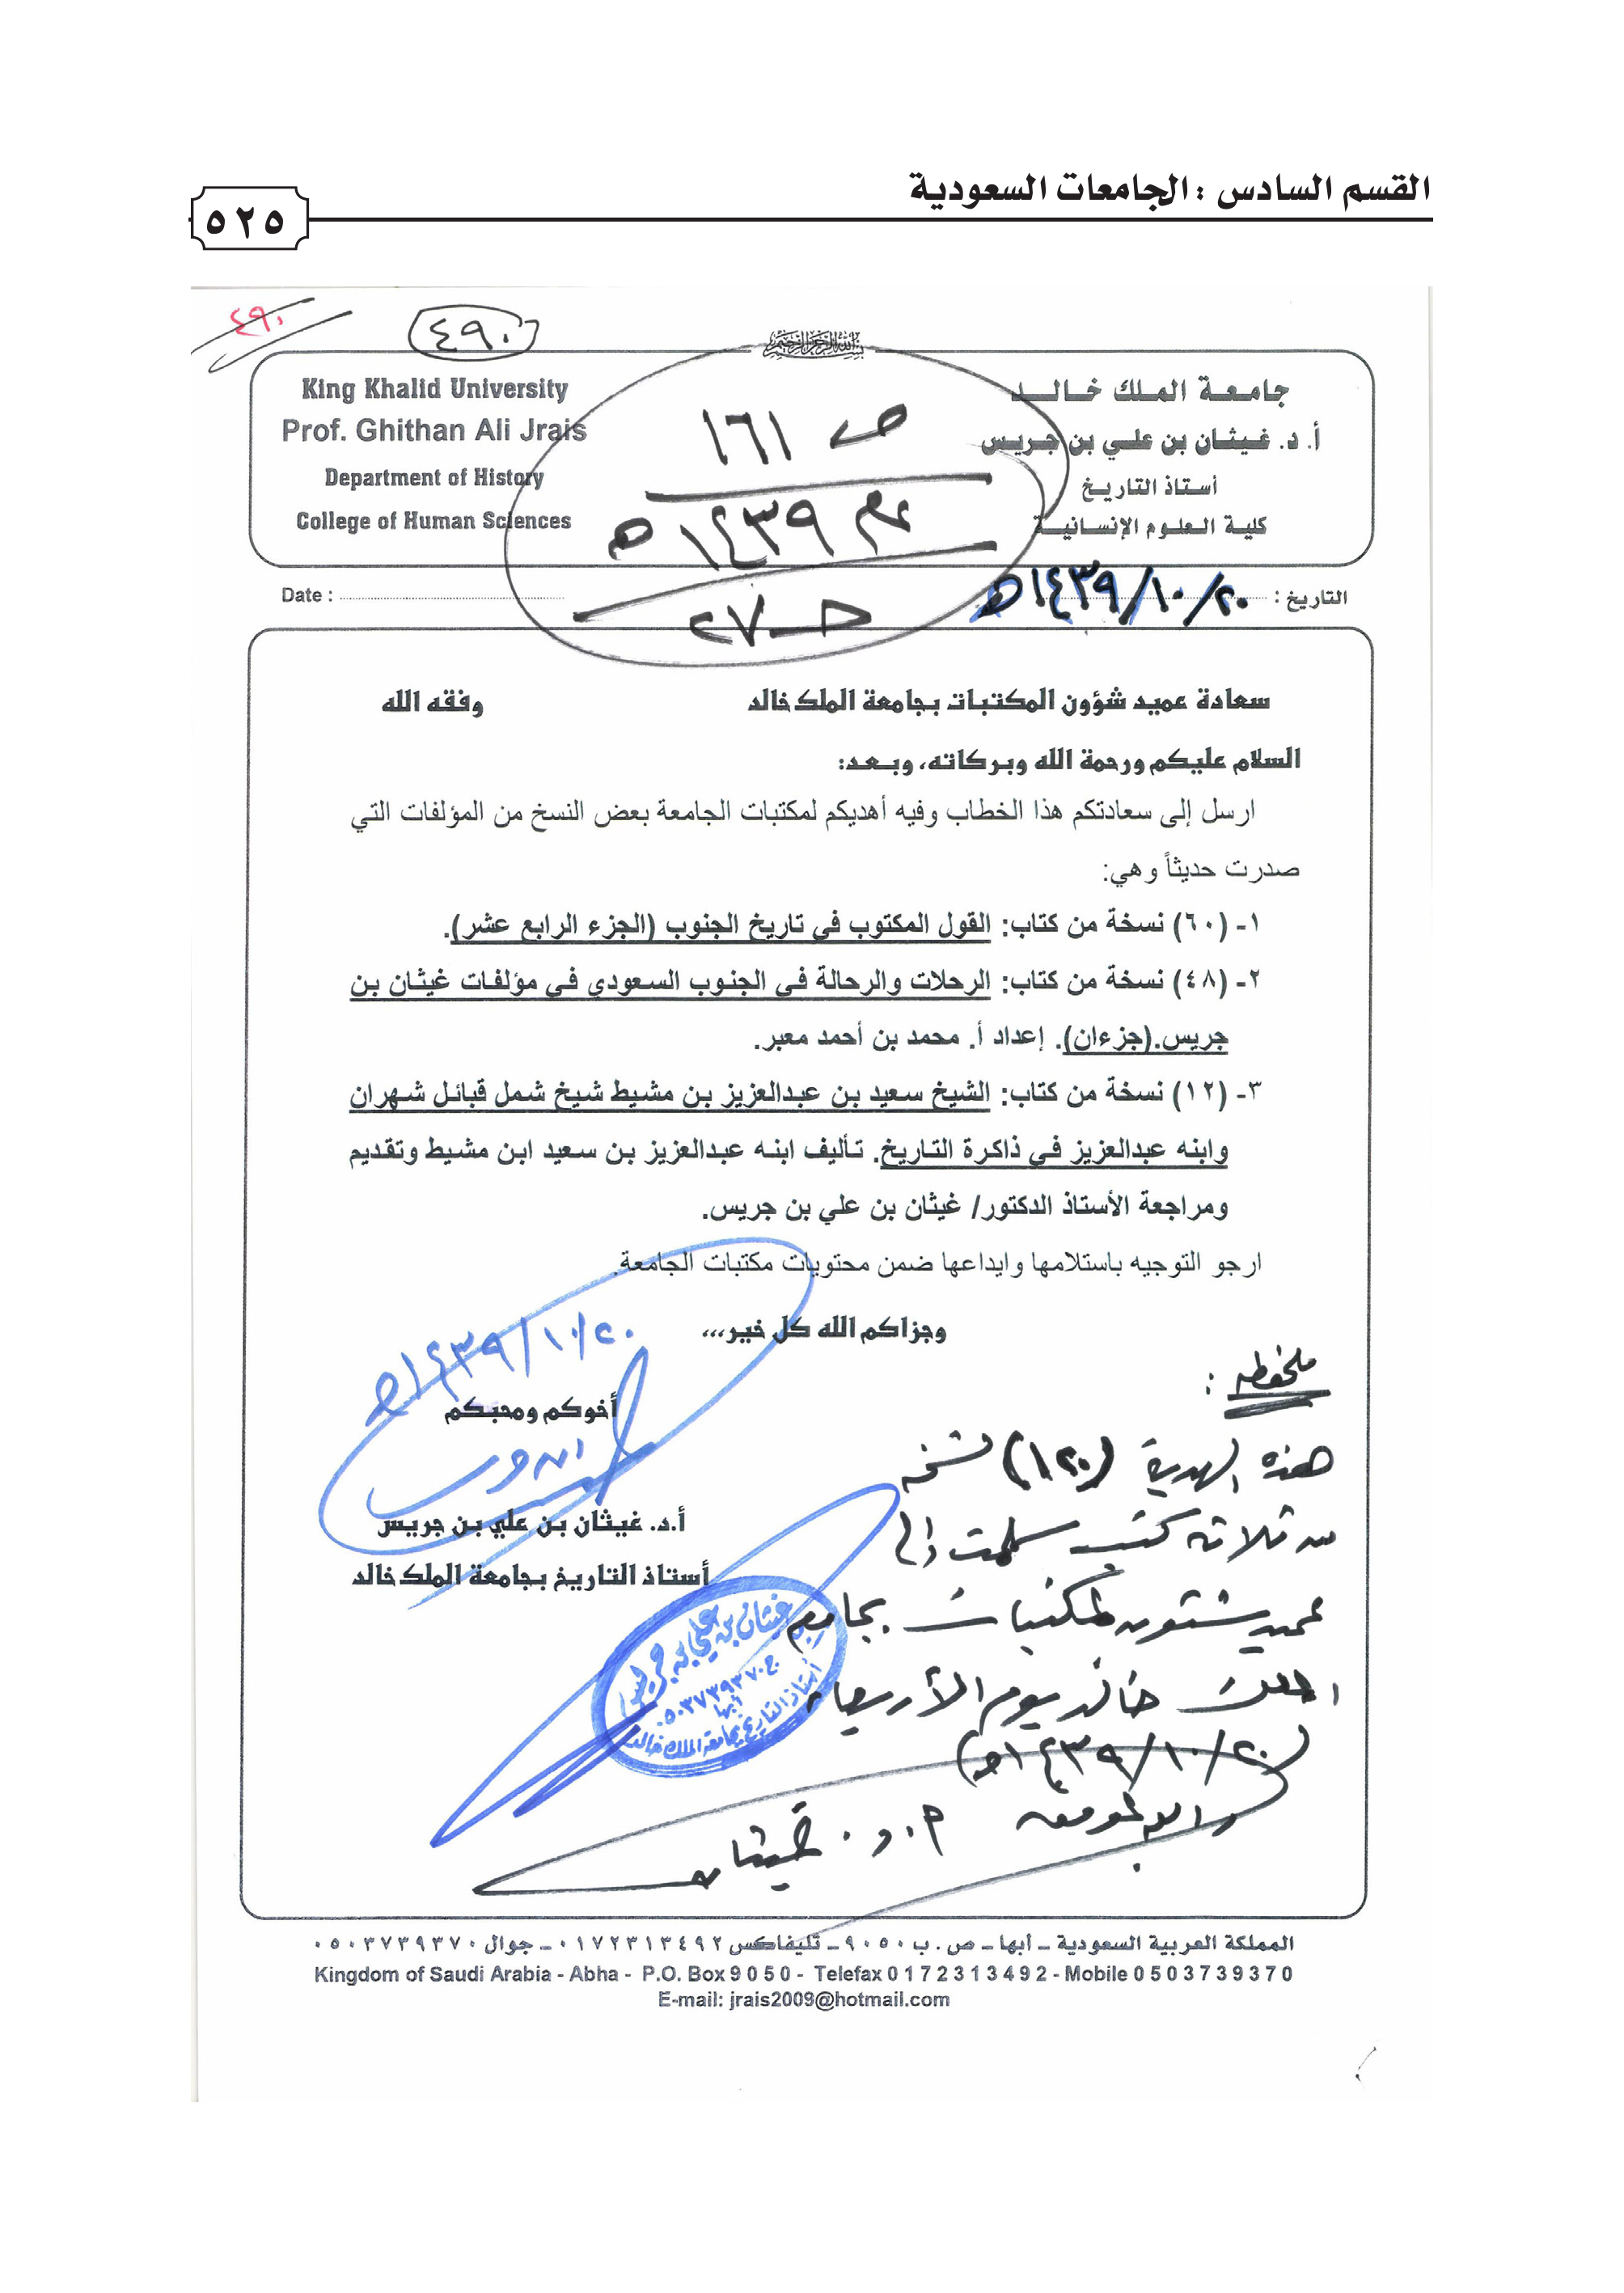 القسم السادس : الجامعات السعودية
٥٢٥
٤٩٠
٤٩٠
بسم الله الرحمن الرحيم
جامعة الملك خالد
أ. د. غيثان بن علي بن جريس
أستاذ التاريخ
كلية العلوم الإنسانية
King Khalid University
Prof. Ghithan Ali Jrais
Department of History
College of Human Sciences
ص ١٦١
عام ١٤٣٩هـ
حـ ٢٧
التاريخ : ٢٠/١٠/١٤٣٩هـ
Date :
سعادة عميد شؤون المكتبات بجامعة الملك خالد وفقه الله
السلام عليكم ورحمة الله وبركاته، وبعد:
ارسل إلى سعادتكم هذا الخطاب وفيه أهديكم لمكتبات الجامعة بعض النسخ من المؤلفات التي
صدرت حديثاً وهي:
١- (٦٠) نسخة من كتاب: القول المكتوب في تاريخ الجنوب (الجزء الرابع عشر).
٢- (٤٨) نسخة من كتاب: الرحلات والرحالة في الجنوب السعودي في مؤلفات غيثان بن
جريس.(جزءان). إعداد أ. محمد بن أحمد معبر.
٣- (١٢) نسخة من كتاب: الشيخ سعيد بن عبدالعزيز بن مشيط شيخ شمل قبائل شهران
وابنه عبدالعزيز في ذاكرة التاريخ. تأليف ابنه عبدالعزيز بن سعيد ابن مشيط وتقديم
ومراجعة الأستاذ الدكتور/ غيثان بن علي بن جريس.
ارجو التوجيه باستلامها وايداعها ضمن محتويات مكتبات الجامعة.
وجزاكم الله كل خير،،،
٢٠/١٠/١٤٣٩هـ
أخوكم ومحبكم
أ.د. غيثان بن علي بن جريس
أستاذ التاريخ بجامعة الملك خالد
ملحظه :
هذه الهدية (١٢٠) نسخه
من ثلاثة كتب سلمت إلى
عميد شئون المكتبات بجامعة
الملك خالد يوم الأربعاء
(٢٠/١٠/١٤٣٩هـ)
والله الموفق أ. د. غيثان
أ.د. غيثان بن علي بن جريس
ج ٠٥٠٣٧٣٩٣٧٠
أبها
أستاذ التاريخ بجامعة الملك خالد
المملكة العربية السعودية – أبها – ص . ب ٩٠٥٠ – تليفاكس ٠١٧٢٣١٣٤٩٢ – جوال ٠٥٠٣٧٣٩٣٧٠
Kingdom of Saudi Arabia - Abha - P.O. Box 9 0 5 0 - Telefax 0 1 7 2 3 1 3 4 9 2 - Mobile 0 5 0 3 7 3 9 3 7 0
E-mail: jrais2009@hotmail.com